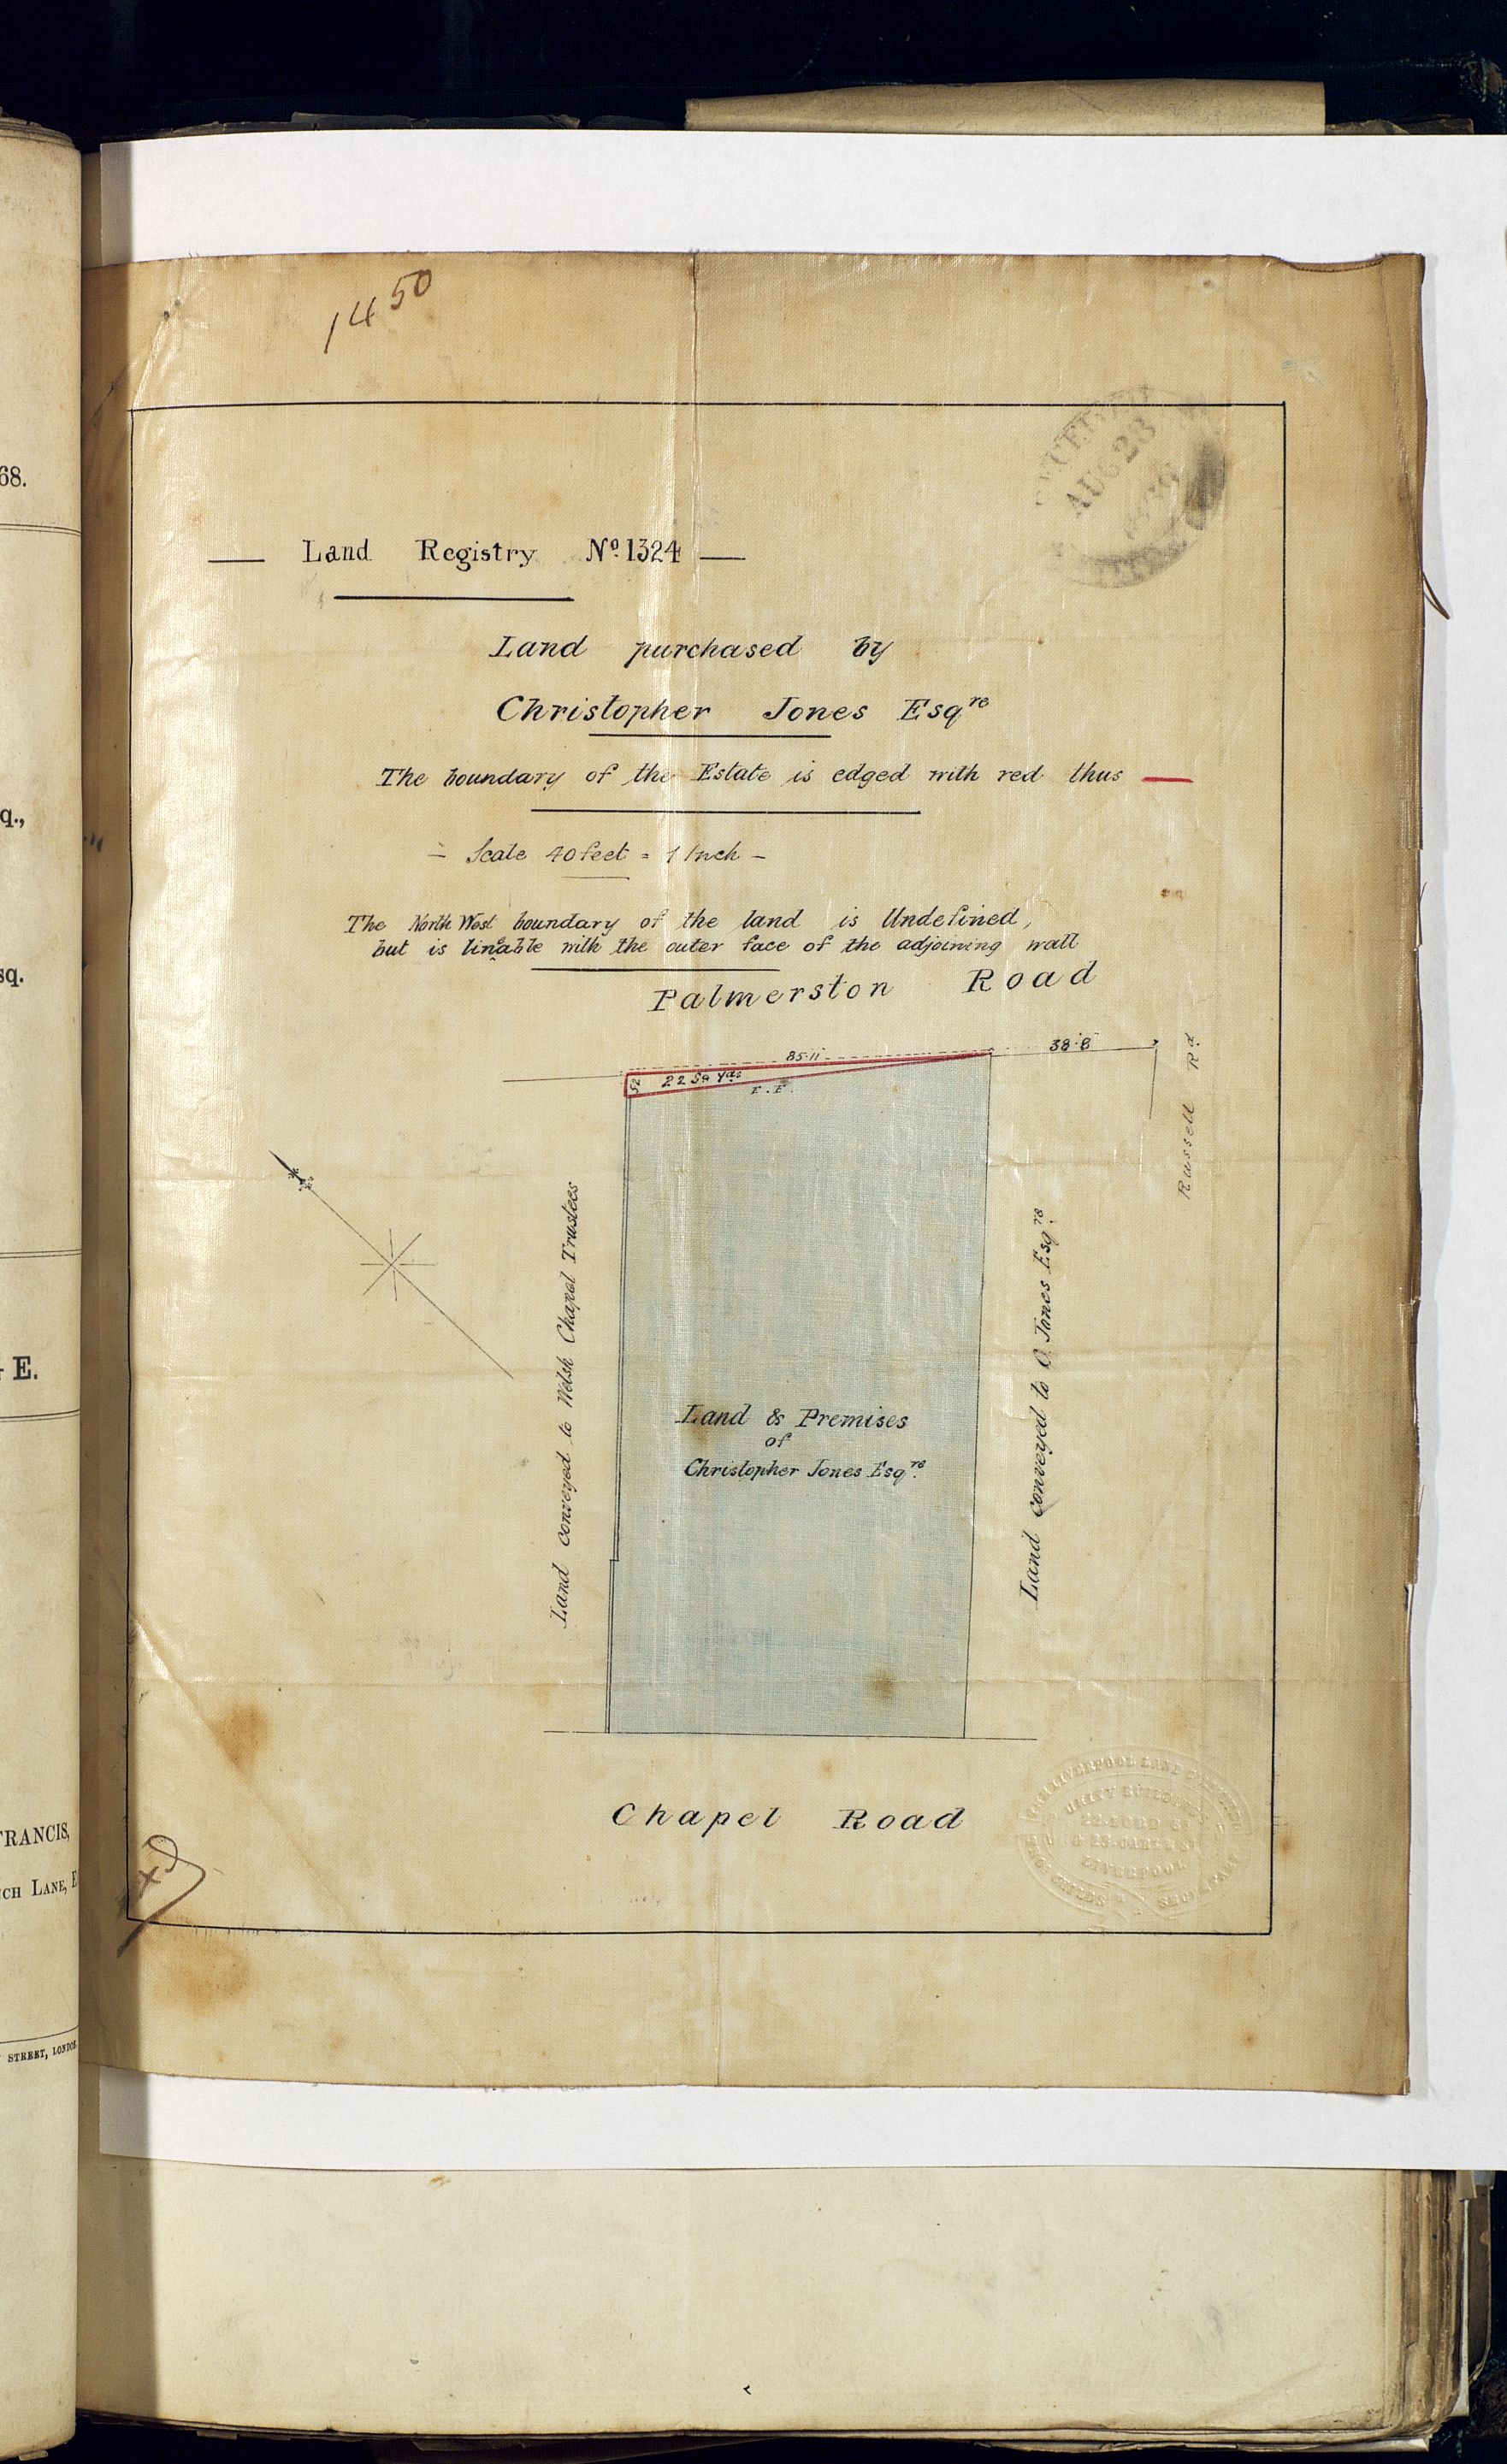 1450
68.
RECEIVED
AUG 28
1886
Land Registry Nº 1324
Land purchased by
Christopher Jones Esqre
q.,
The boundary of the Estate is edged with red thus
Scale 40 feet = 1 Inch
The North West boundary of the land is Undefined,
but is lineable with the outer face of the adjoining wall
sq.
Palmerston Road
85·11
38·8
22 Sq Yds
Russell Rd
Land conveyed to Welsh Chapel Trustees
Land conveyed to O. Jones Esqre.
E.
Land & Premises
of
Christopher Jones Esqre.
Chapel Road
UNITY BUILDINGS
22 LORD ST
LIVERPOOL
FRANCIS,
CH LANE, E
STREET, LONDON